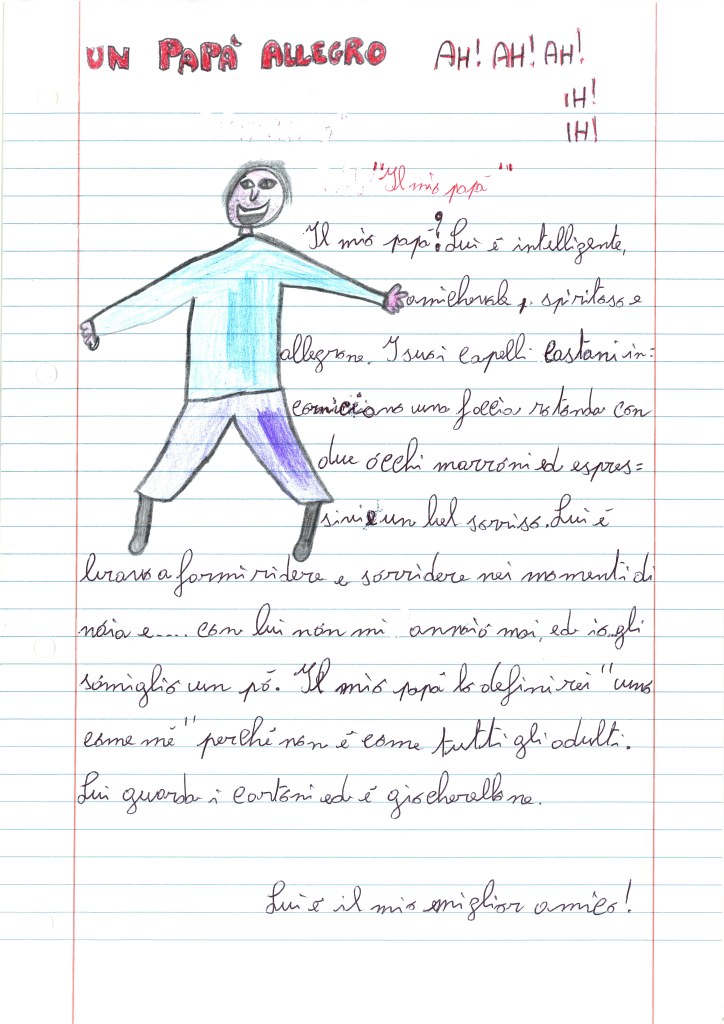 UN PAPÀ ALLEGRO AH! AH! AH!
IH!
IH!
"Il mio papà"
Il mio papà? Lui è intelligente,
amichevole, spiritoso e
allegrone. I suoi capelli castani in=
corniciano una faccia rotonda con
due occhi marroni ed espres=
sivi e un bel sorriso. Lui è
bravo a farmi ridere e sorridere nei momenti di
noia e.... con lui non mi annoio mai, ed io gli
somiglio un pó. Il mio papà lo definirei "uno
come mè" perché non è come tutti gli adulti.
Lui guarda i cartoni ed è giocherellone.
Lui è il mio miglior amico!